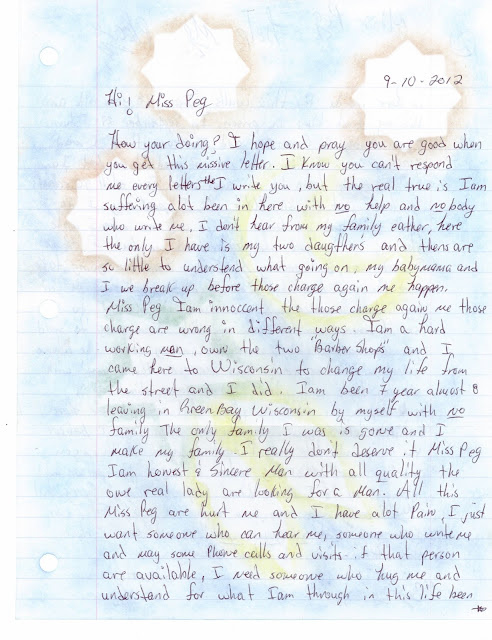 9-10-2012
Hi! Miss Peg
How your doing? I hope and pray you are good when
you get this missive letter. I know you can't respond
me every letters the I write you, but the real true is Iam
suffering alot been in here with no help and nobody
who write me. I don't hear from my family eather, here
the only I have is my two daugthers and thens are
so little to understand what going on, my babymama and
I we break up before those charge again me happen.
Miss Peg Iam innoccent the those charge again me those
charge are wrong in different ways. Iam a hard
working man, own the two "Barber Shops" and I
came here to Wisconsin to change my life from
the street and I did. Iam been 7 year almost 8
leaving in Green Bay Wisconsin by myself with no
family The only family I was is gone and I
make my family I really dont deserve it Miss Peg
Iam honest & Sincere Man with all quality the
one real lady are looking for a Man. All this
Miss Peg are hurt me and I have alot Pain, I just
want someone who can hear me, someone who write me
and may some Phone calls and visits if that person
are available, I need someone who hug me and
understand for what Iam through in this life been